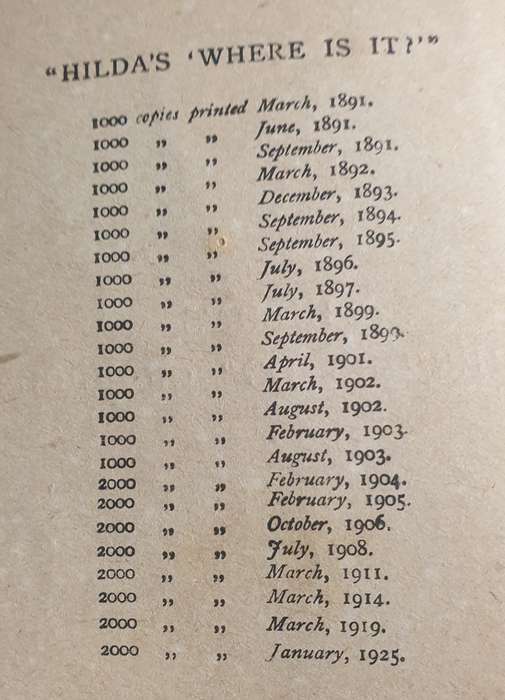 “HILDA'S ‘WHERE IS IT?’”
1000 copies printed March, 1891.
1000 ,, ,, June, 1891.
1000 ,, ,, September, 1891.
1000 ,, ,, March, 1892.
1000 ,, ,, December, 1893.
1000 ,, ,, September, 1894.
1000 ,, ,, September, 1895.
1000 ,, ,, July, 1896.
1000 ,, ,, July, 1897.
1000 ,, ,, March, 1899.
1000 ,, ,, September, 1899.
1000 ,, ,, April, 1901.
1000 ,, ,, March, 1902.
1000 ,, ,, August, 1902.
1000 ,, ,, February, 1903.
1000 ,, ,, August, 1903.
2000 ,, ,, February, 1904.
2000 ,, ,, February, 1905.
2000 ,, ,, October, 1906.
2000 ,, ,, July, 1908.
2000 ,, ,, March, 1911.
2000 ,, ,, March, 1914.
2000 ,, ,, March, 1919.
2000 ,, ,, January, 1925.